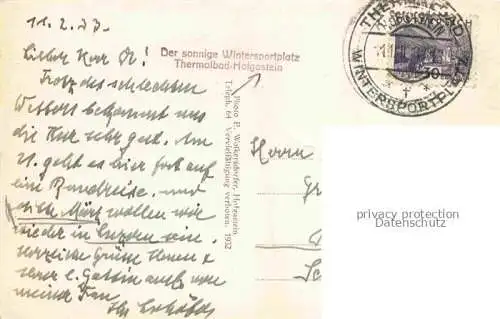 11.2.33.
Lieber Herr Dr!
Trotz des schlechten
Wetters bekommt uns
die Kur sehr gut. Am
21. geht es hier fort auf
eine Rundreise und
Mitte März wollen wir
wieder in sein.
Herzliche Grüße Ihnen &
Ihrer l. Gattin auch von
meiner Frau
Ihr
Der sonnige Wintersportplatz
Thermalbad-Hofgastein
Photo P. Wolkersdorfer, Hofgastein
Teleph. 64 Vervielfältigung verboten. 1932
THERMALBAD
HOFGASTEIN
WINTERSPORTPLATZ
30
Herrn
privacy protection
Datenschutz